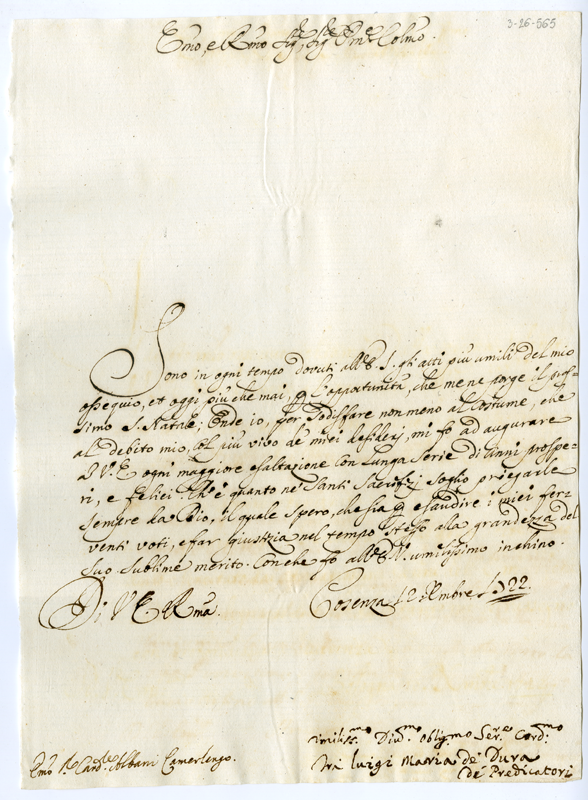 3-26-565
Emo, e Rmo Sigre, Sigre Pne Colmo.
Sono in ogni tempo dovuti all'E. S. gli atti più umili del mio
ossequio, et oggi più che mai, p l'opportunità, che me ne porge il pros-
simo S. Natale; Onde io, per sodisfare non meno al Costume, che
al debito mio, col più vivo de' miei desiderj, mi fo ad augurare
a V. E. ogni maggiore esaltazione con lunga serie di anni prospe-
ri, e felici. Ch'è quanto ne' Santi Sacrifizj soglio priegarle
sempre da Dio, il quale spero, che sia p esaudire i miei fer-
venti voti, e far giustizia nel tempo stesso alla grandezza del
suo sublime merito. Con che fo all'E. V. umilissimo inchino.
Di V. E. Rma.
Cosenza 12 Xmbre 1722.
Umilissmo Divmo obligmo Serre Cordmo
Emo Sr Cardle Albani Camerlengo.
Fra Luigi Maria de Dura
de' Predicatori